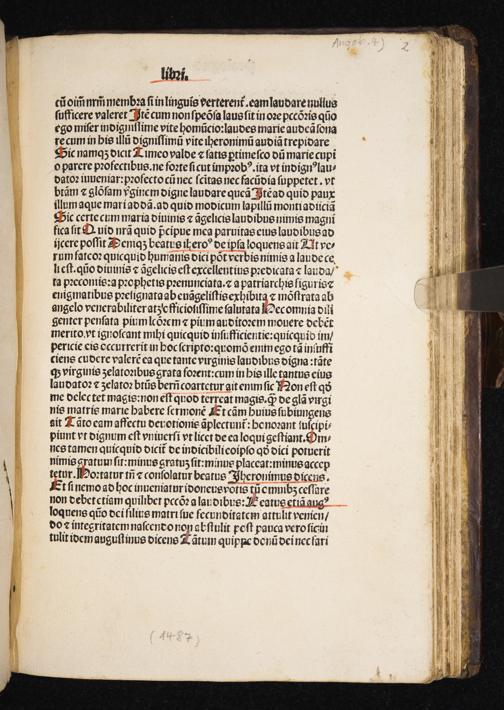 2
libri.
cũ oim̃ nr̃m membra si in linguis verterent᷑. eam laudare nullus
sufficere valeret Itẽ cum non speõsa laus sit in ore pccõris quõ
ego miser indignissime vite homũcio: laudes marie audeã sona
re cum in bis illũ dignissimũ vite iheronimũ audiã trepidare
Sic namqꝫ dicit Timeo valde & satis ꝑtimesco dũ marie cupi
o parere profectibus. ne forte si cut improbꝰ. ita vt indignꝰ lau
dator inueniar: profecto cũ nec scitas nec facũdia suppetet. vt
btãm & glõsam ỹginem digne laudare queã Itẽ ad quid paux
illum aque mari addã. ad quid modicum lapillũ monti adiciã
Sic certe cum maria diuinis & ãgelicis laudibus nimis magni
fica sit Quid nrãm quid p̃cipue mea paruitas eius laudibus ad
ijcere possit Demqꝫ beatus iheroꝰ de ipsa loquens ait Ut ve-
rum fateor quicquid humanis dici põt verbis nimis a laude ce
li est. quõ diuinis & ãgelicis est excellentius predicata & lauda/
ta preconiis: a prophetis prenunciata. & a patriarchis figuris &
enigmatibus presignata ab euãgelistis exhibita & mõstrata ab
angelo venerabiliter atqꝫ officiosissime salutata Hec omnia dili
genter pensata pium lcõrem & pium auditorem mouere debẽt
merito. vt ignoscant mihi quicquid insufficientie: quicquid im/
pericie eis occurrerit in hoc scripto: quomõ enim ego tã insuffi
ciens cudere valerẽ ea que tante virginis laudibus digna: tãte
qꝫ virginis zelatoribus grata forent: cum in bis ille tantus eius
laudator & zelator btũs berñ coartetur ait enim sic Non est qõ
me delectet magis: non est quod terreat magis. ꝙ̃ de glã virgi
nis matris marie habere sermonẽ Et cãm huius subiungens
ait Tãto eam affectu deuotionis ãplectunt᷑: honorant suscipi-
piunt vt dignum est vniuersi vt licet de ea loqui gestiant. Om-
nes tamen quicquid dicit᷑ de indicibili eoipso qõ dici potuerit
nimis gratum sit: minus gratuꝫ sit: minus placeat: minus accep
tetur. Hortatur tñ & consolatur beatus Jheronimus dicens.
Et si nemo ad hoc inueniatur idoneus votis tñ e muibꝫ cessare
non debet etiam quilibet pccõr a laudibus: Beatus etiã augꝰ
loquens quõ dei filius matri sue fecunditatem attulit venien/
do & integritatem nascendo non abstulit post pauca vero sic in
tulit idem augustinus dicens Tãtum quippe donũ dei nec fari
(1487)